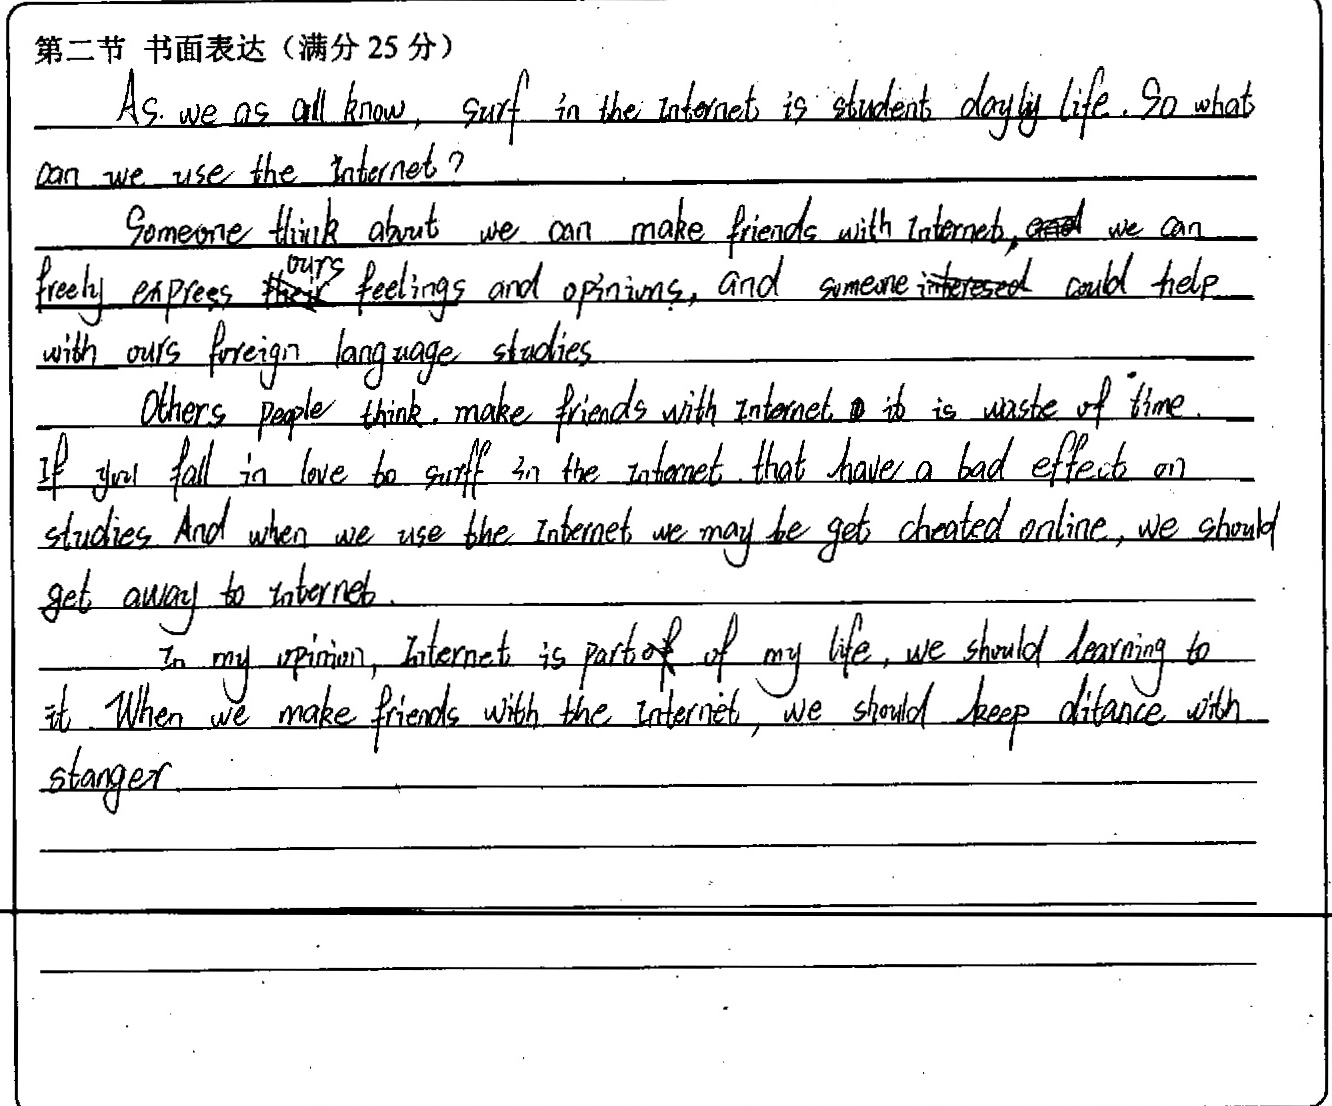 第二节 书面表达（满分 25 分）
As. we as all know, surf in the Internet is student dayly life. So what
can we use the Internet?
Someone think about we can make friends with Internet, we can
freely exprees ours feelings and opinions, and someone could help
with ours foreign language studies
Others people think. make friends with Internet it is waste of time.
If you fall in love to surff in the Internet. that have a bad effect on
studies. And when we use the Internet we may be get cheated online, we should
get away to Internet.
In my opinion, Internet is part of my life, we should learning to
it. When we make friends with the Internet, we should keep ditance with
stanger.